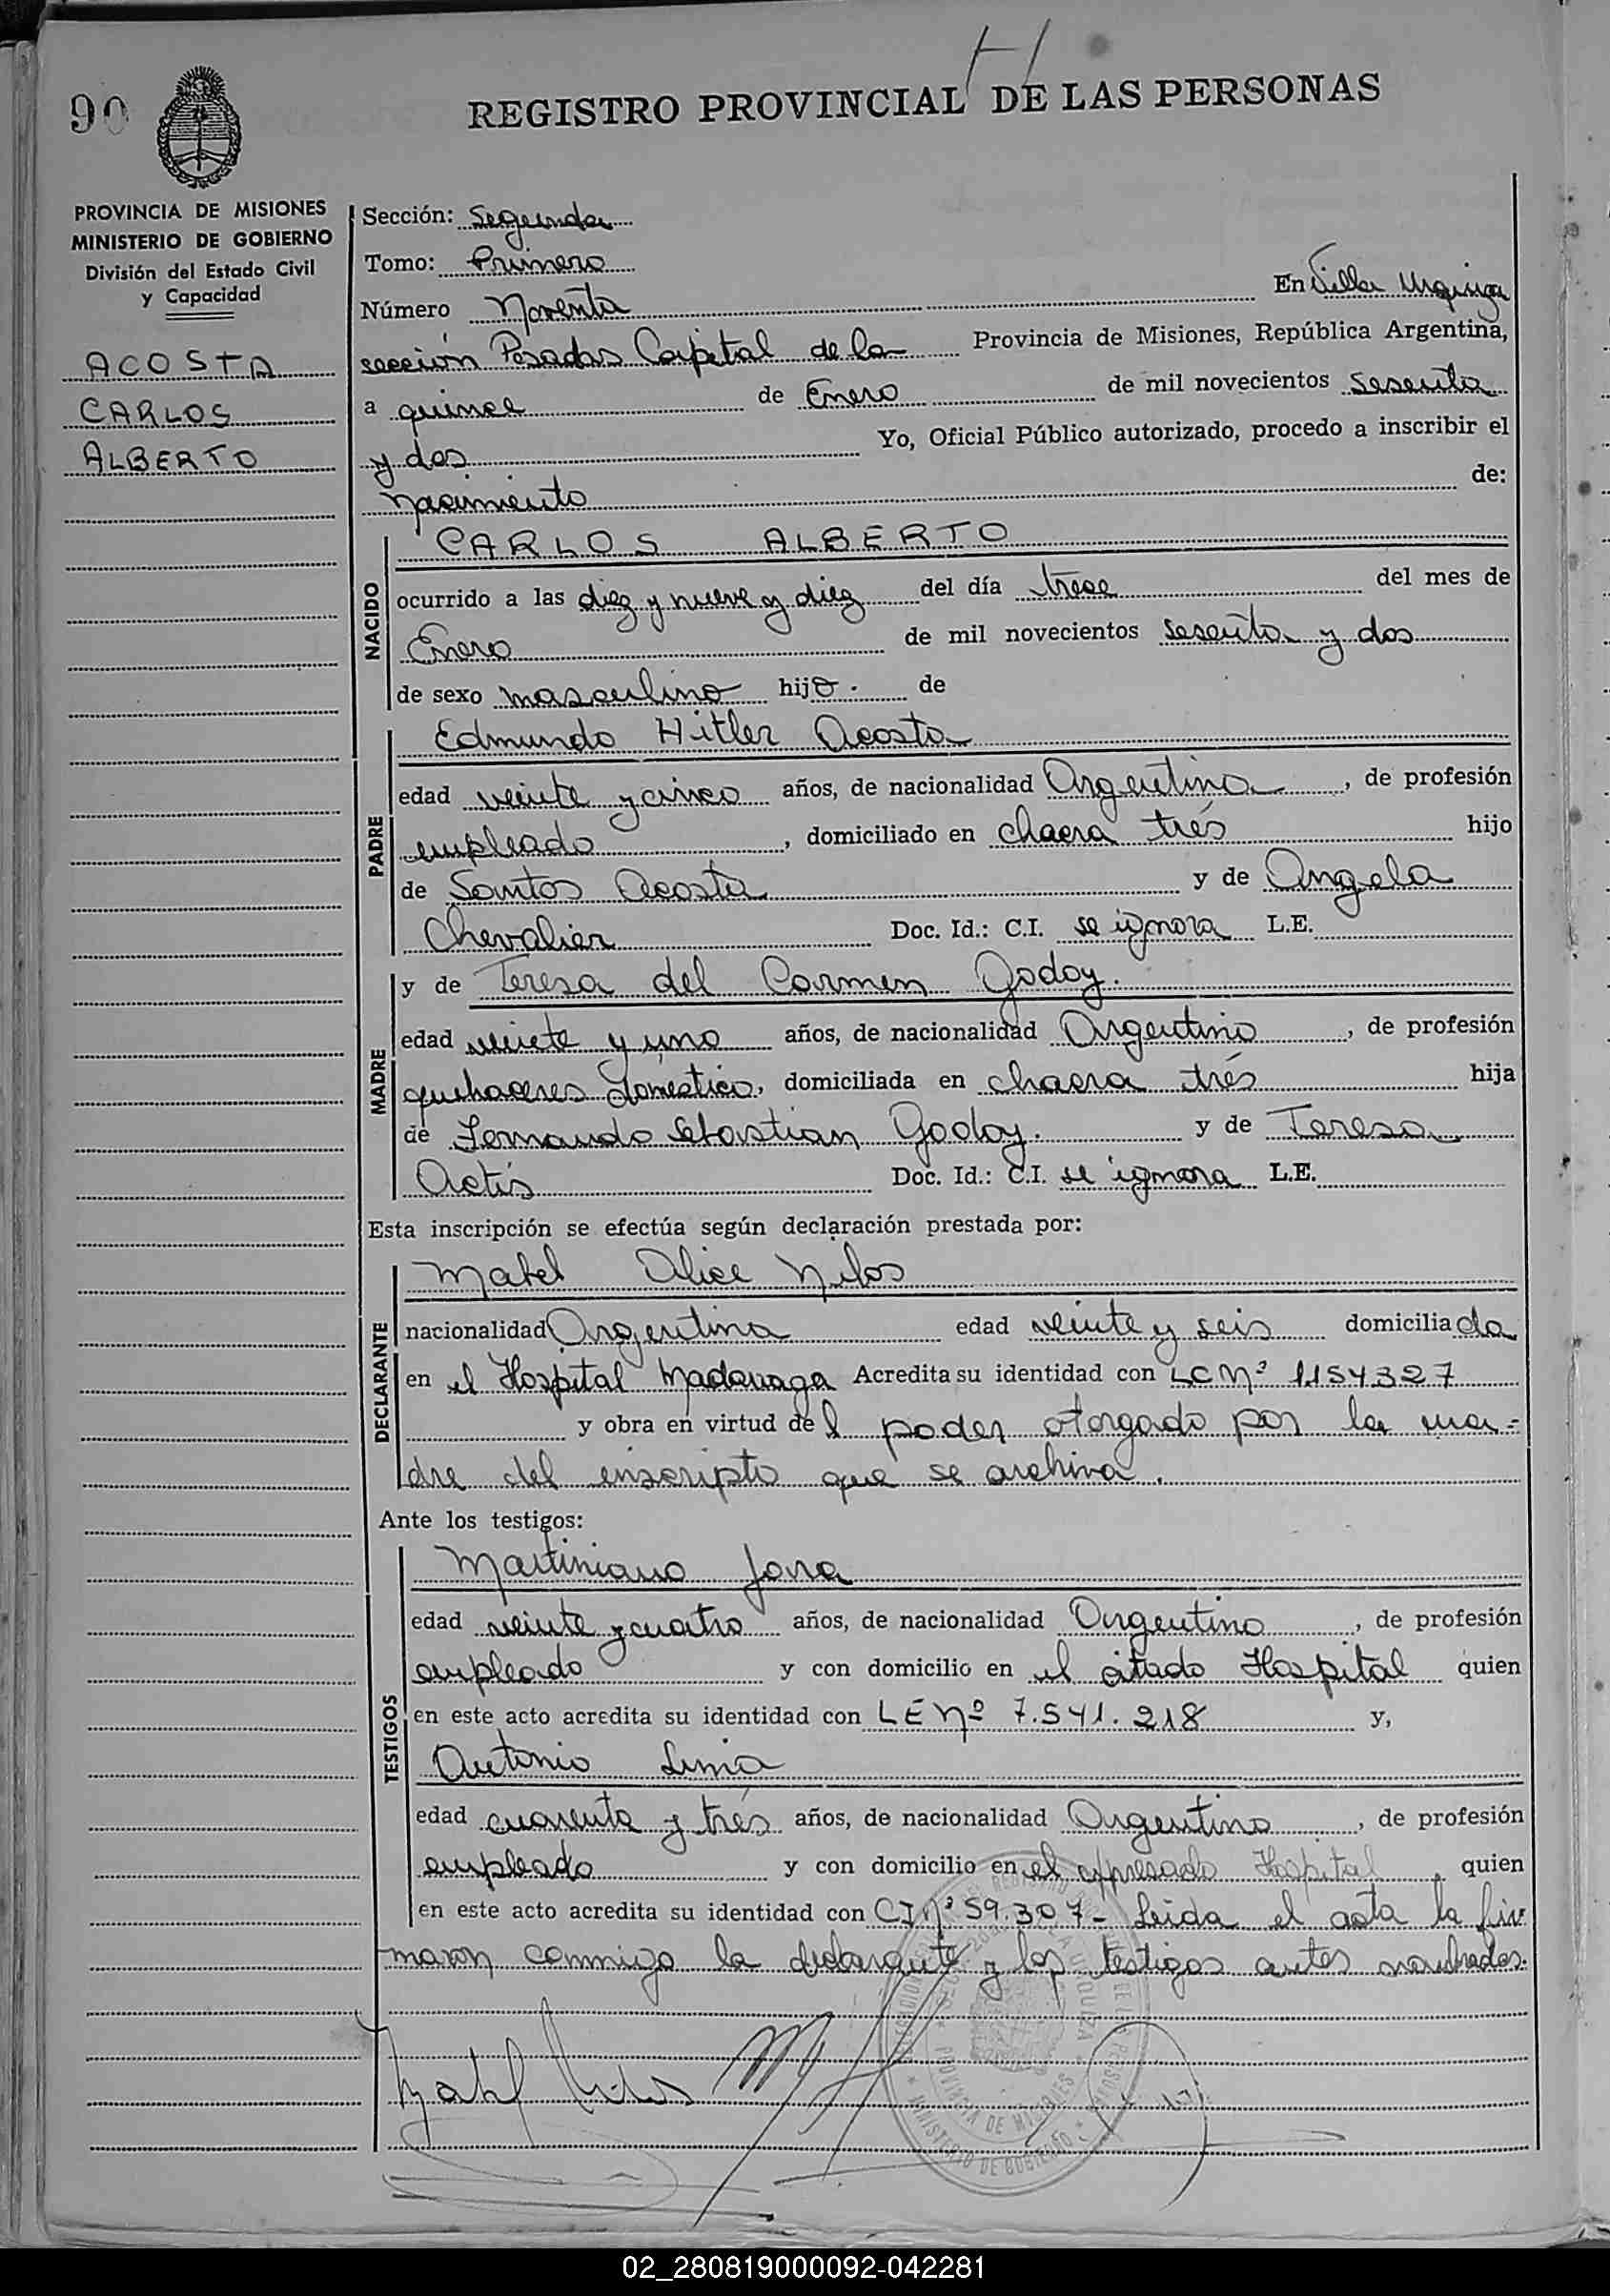 H
90
REGISTRO PROVINCIAL DE LAS PERSONAS
PROVINCIA DE MISIONES
MINISTERIO DE GOBIERNO
División del Estado Civil
y Capacidad
ACOSTA
CARLOS
ALBERTO
Sección: Segunda
Tomo: Primero
Número Noventa En Villa Urquiza
sección Posadas Capital de la Provincia de Misiones, República Argentina,
a quince de Enero de mil novecientos sesenta
y dos Yo, Oficial Público autorizado, procedo a inscribir el
nacimiento de:
NACIDO
CARLOS ALBERTO
ocurrido a las diez y nueve y diez del día trece del mes de
Enero de mil novecientos sesenta y dos
de sexo masculino hijo. de
PADRE
Edmundo Hitler Acosta
edad veinte y cinco años, de nacionalidad Argentina, de profesión
empleado, domiciliado en chacra trés hijo
de Santos Acosta y de Angela
Chevalier Doc. Id.: C.I. se ignora L.E.
MADRE
y de Teresa del Carmen Godoy.
edad veinte y uno años, de nacionalidad Argentina, de profesión
quehaceres doméstico, domiciliada en chacra trés hija
de Fernando Sebastian Godoy. y de Teresa
Actis Doc. Id.: C.I. se ignora L.E.
Esta inscripción se efectúa según declaración prestada por:
DECLARANTE
Mabel Alice
nacionalidad Argentina edad veinte y seis domiciliada
en el Hospital Madariaga Acredita su identidad con LC Nº 1154327
y obra en virtud del poder otorgado por la ma=
dre del inscripto que se archiva.
Ante los testigos:
TESTIGOS
Martiniano Jara
edad veinte y cuatro años, de nacionalidad Argentino, de profesión
empleado y con domicilio en el citado Hospital quien
en este acto acredita su identidad con LE Nº 7.541.218 y,
Antonio Lima
edad cuarenta y trés años, de nacionalidad Argentino, de profesión
empleado y con domicilio en el expresado Hospital quien
en este acto acredita su identidad con CI Nº 59.307- Leida el acta la fir
maron conmigo la declarante y los testigos antes nombrados.
PROVINCIA DE MISIONES
MINISTERIO DE GOBIERNO
02_280819000092-042281